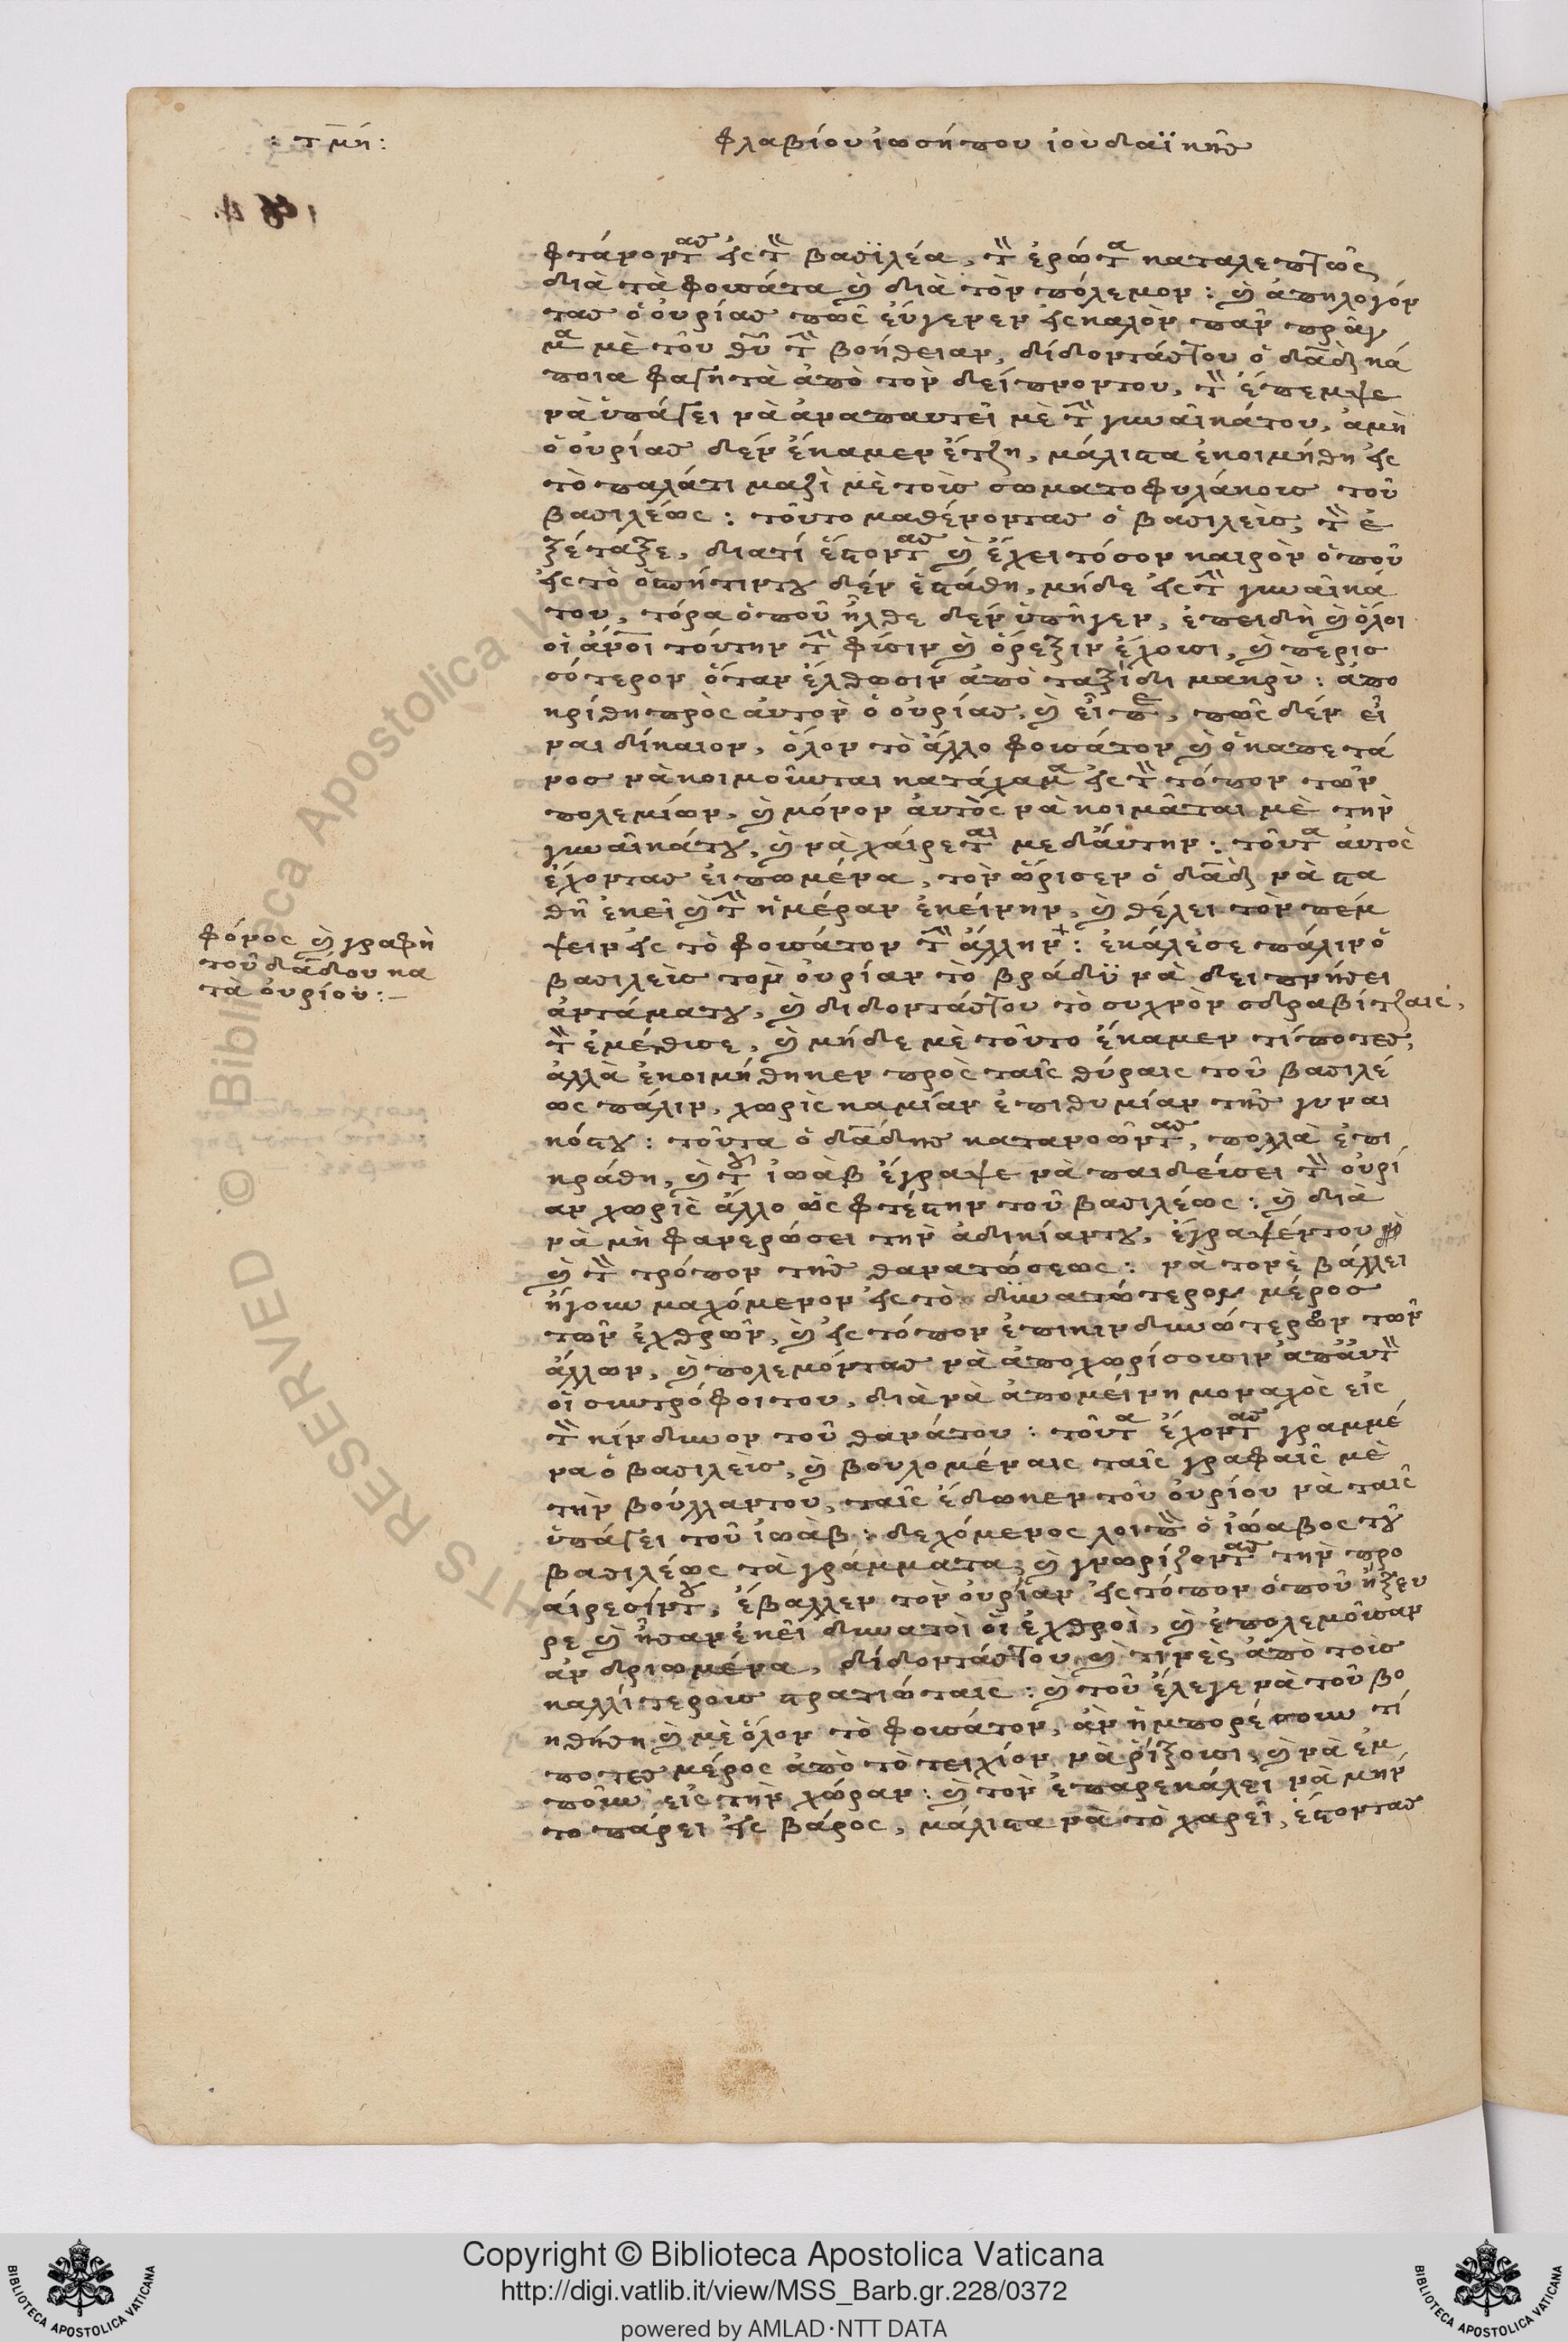 : τμή :
φλαβίου ἰωσήπου ἰουδαϊκῆς
φτάνοντας εἰς τὸν βασιλέα, τὸν ἐρώτα καταλεπτῶς
διὰ τὰ φουσάτα καὶ διὰ τὸν πόλεμον : καὶ ἀπηλογόν
τας ὁ οὐρίας πῶς εὔγενεν εἰς καλὸν πᾶν πρᾶγ
μα μὲ τοῦ θῦ τὴν βοήθειαν, δίδοντάς του ὁ δαδ κά
ποια φαγητὰ ἀπὸ τὸν δεῖπνον του, τὸν ἔπεμψε
νὰ ὑπάγει νὰ ἀναπαυτεῖ μὲ τὴν γυναῖκά του, ἀμὴ
ὁ οὐρίας δὲν ἔκαμεν ἔτζη, μάλιστα ἐκοιμήθη εἰς
τὸ παλάτι μαζὶ μὲ τοὺς σωματοφυλάκους τοῦ
βασιλέως : τοῦτο μαθένοντας ὁ βασιλεὺς, τὸν ἐ
ξέταξε, διατί ἔστοντας καὶ ἔχει τόσον καιρὸν ὁποῦ
εἰς τὸ ὁσπήτιν του δὲν ἐστάθη, μήδε εἰς τὴν γυναῖκά
του, τόρα ὁποῦ ἦλθε δὲν ὑπῆγεν, ἐπειδὴ καὶ ὅλοι
οἱ ἄνοι τούτην τὴν φύσιν καὶ ὄρεξιν ἔχουσι, καὶ περισ
σότερον ὅταν ἔλθωσιν ἀπὸ ταξίδι μακρὺ : ἀπο
κρίθη πρὸς αὐτὸν ὁ οὐρίας, καὶ εἶπε, πῶς δὲν εἶ
ναι δίκαιον, ὅλον τὸ ἄλλο φουσάτον καὶ ὁ καπετά
νος νὰ κοιμοῦνται κατάχαμα εἰς τὸν τόπον τῶν
πολεμίων, καὶ μόνον αὐτὸς νὰ κοιμᾶται μὲ τὴν
γυναῖκά του, καὶ νὰ χαίρεται με δαύτην : τοῦτα αὐτὸς
ἔχοντας εἰπωμένα, τὸν ὥρισεν ὁ δαδ νὰ στα
θῆ ἐκεῖ καὶ τὴν ἡμέραν ἐκείνην, καὶ θέλει τὸν πέμ
ψειν εἰς τὸ φουσάτον τὴν ἄλλην : ἐκάλεσε πάλιν ὁ
φόνος καὶ γραφὴ
τοῦ δαδου κα
τὰ οὐρίου :–
βασιλεὺς τὸν οὐρίαν τὸ βράδυ νὰ δειπνήσει
ἀντάμα του, καὶ διδοντάς του τὸ συχνὸν σδραβίτζαις,
τὸν ἐμέθυσε, καὶ μήδε μὲ τοῦτο ἔκαμεν τίποτες,
ἀλλὰ ἐκοιμήθηκεν πρὸς ταῖς θύραις τοῦ βασιλέ
ως πάλιν, χωρὶς καμίαν ἐπιθυμίαν τῆς γυναι
κός του : τοῦτα ὁ δαδης κατανοῶντας, πολλὰ ἐπι
κράθη, καὶ τοῦ ἰωὰβ ἔγραψε νὰ παιδεύσει τὸν οὐρί
αν χωρὶς ἄλλο ὡς φτέστην τοῦ βασιλέως : καὶ διὰ
νὰ μὴ φανερώσει τὴν ἀδικίαν του, ἔγραψέν του
καὶ τὸν τρόπον τῆς θανατώσεως : νὰ τονὲ βάλλει
ἤγουν μαχόμενον εἰς τὸ δυνατώτερον μέρος
τῶν ἐχθρῶν, καὶ εἰς τόπον ἐπικινδυνώτερον τῶν
ἄλλων, καὶ πολεμόντας νὰ ἀποχωρίσουσιν ἀπαὐτὸν
οἱ συντρόφοι του, διὰ νὰ ἀπομείνη μοναχὸς εἰς
τὸν κίνδυνον τοῦ θανάτου : τοῦτα ἔχοντας γραμμέ
να ὁ βασιλεὺς, καὶ βουλομέναις ταῖς γραφαῖς μὲ
τὴν βοῦλλαν του, ταῖς ἔδωκεν τοῦ οὐρίου νὰ ταῖς
ὑπάγει τοῦ ἰωὰβ : δεχόμενος λοιπὸν ὁ ἰώαβος τοῦ
βασιλέως τὰ γράμματα, καὶ γνωρίζοντας τὴν προ
αίρεσίν του, ἔβαλλεν τὸν οὐρίαν εἰς τόπον ὁποῦ ἤξευ
ρε καὶ ἦσαν ἐκεῖ δυνατοὶ οἱ ἐχθροὶ, καὶ ἐπολεμοῦσαν
ἀνδριωμένα, δίδοντάς του καὶ τινὲς ἀπὸ τοὺς
καλλίτερους στρατιώταις : καὶ τοῦ ἔλεγε νὰ τοῦ βο
ηθήση καὶ μὲ ὅλον τὸ φουσάτον, ἂν ἠμπορέσουν τί
ποτες μέρος ἀπὸ τὸ τειχίον νὰ ρίξουσι, καὶ νὰ ἐμ
ποῦν εἰς τὴν χώραν : καὶ τὸν ἐπαρεκάλει νὰ μὴν
το πάρει εἰς βάρος, μάλιστα νὰ τὸ χαρεῖ, ἔστοντας
Copyright © Biblioteca Apostolica Vaticana
http://digi.vatlib.it/view/MSS_Barb.gr.228/0372
powered by AMLAD·NTT DATA